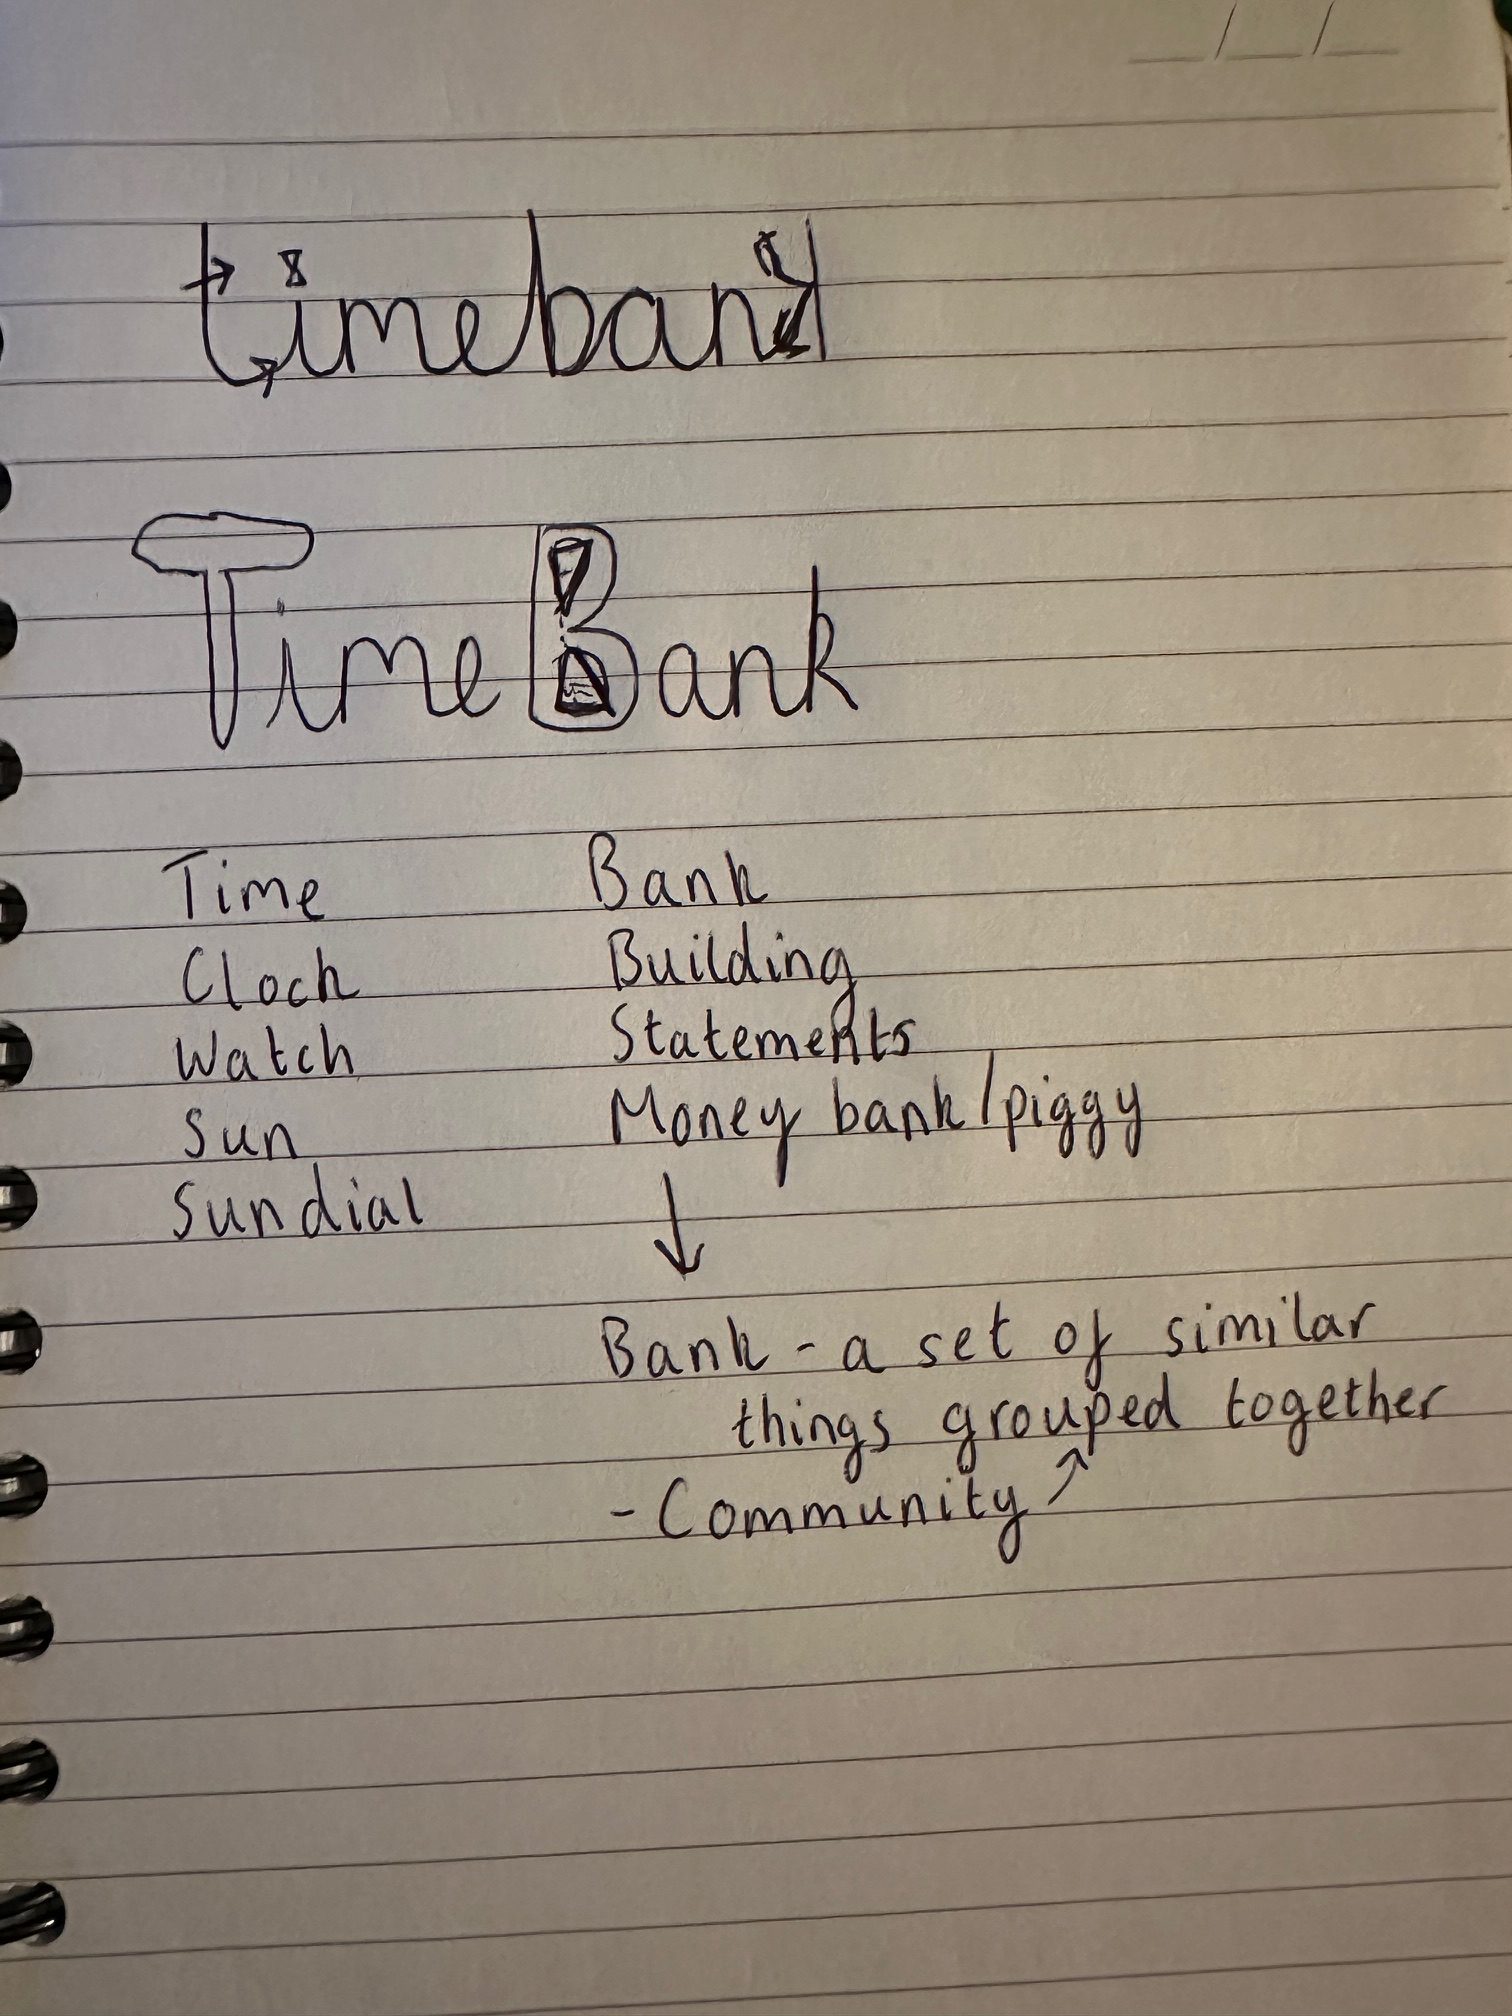 timebank
TimeBank
Time Bank
Clock Building
Watch Statements
Sun Money bank/piggy
Sundial
Bank - a set of similar
things grouped together
- Community